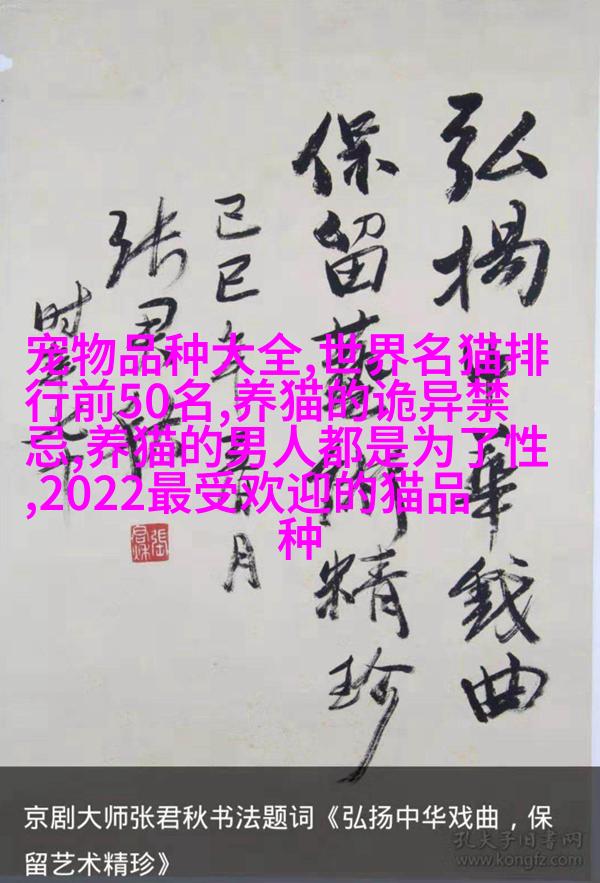 弘揚中華戲曲
保留藝術精珍
己巳年春月
张君秋
时年七十
宠物品种大全,世界名猫排
行前50名,养猫的诡异禁
忌,养猫的男人都是为了性
,2022最受欢迎的猫品
种
京剧大师张君秋书法题词《弘扬中华戏曲，保
留艺术精珍》
孔夫子旧书网
www.kongfz.com